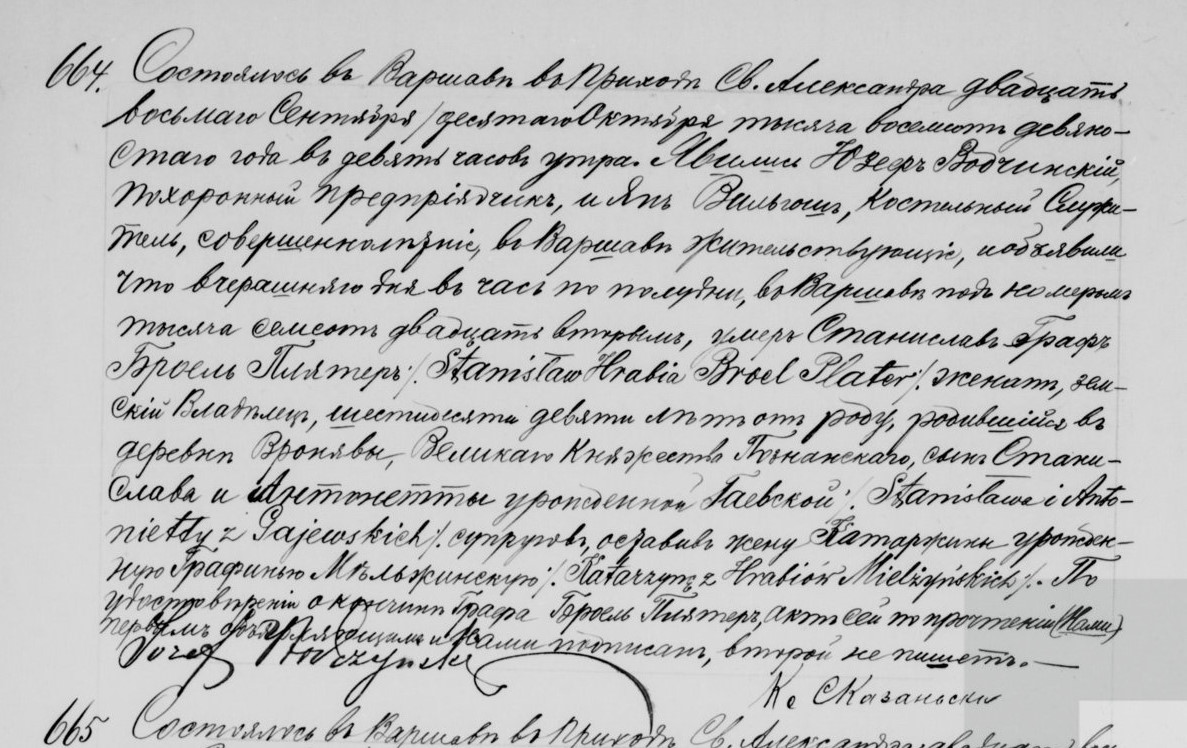 664. Состоялось въ Варшавѣ въ Приходѣ Св. Александра двадцать
восьмаго Сентября / десятаго Октября тысяча восемсотъ девяно-
стаго года въ девять часовъ утра. Явились Юзефъ Водчинскій,
похоронный предпріятчикъ, и Янъ Вильгошъ, Костельный Служи-
тель, совершеннолѣтніе, въ Варшавѣ жительствующіе, и объявили
что вчерашняго дня въ часъ по полудни, въ Варшавѣ подъ номеромъ
тысяча семсотъ двадцать вторымъ, умеръ Станиславъ Графъ
Броель Плятеръ /. Stanisław Hrabia Broel Plater /. женатъ, зем-
скій Владѣлецъ, шестидесяти девяти лѣтъ отъ роду, родившійся въ
деревнѣ Вронявы, Великаго Княжества Познанскаго, сынъ Стани-
слава и Антонетты урожденной Гаевской /. Stanisława i Anto-
nietty z Gajewskich /. супруговъ, оставивъ жену Катаржину урожден-
ную Графиню Мѣльжинскую /. Katarzynę z Hrabiów Mielżyńskich /. По
удостовѣреніи о кончинѣ Графа Броель Плятеръ, актъ сей по прочтеніи (Нами)
первымъ объявляющимъ и Нами подписанъ, второй не пишетъ. —
Józef Wodczyński
Кс Сказаньски
665 Состоялось въ Варшавѣ въ Приходѣ Св.